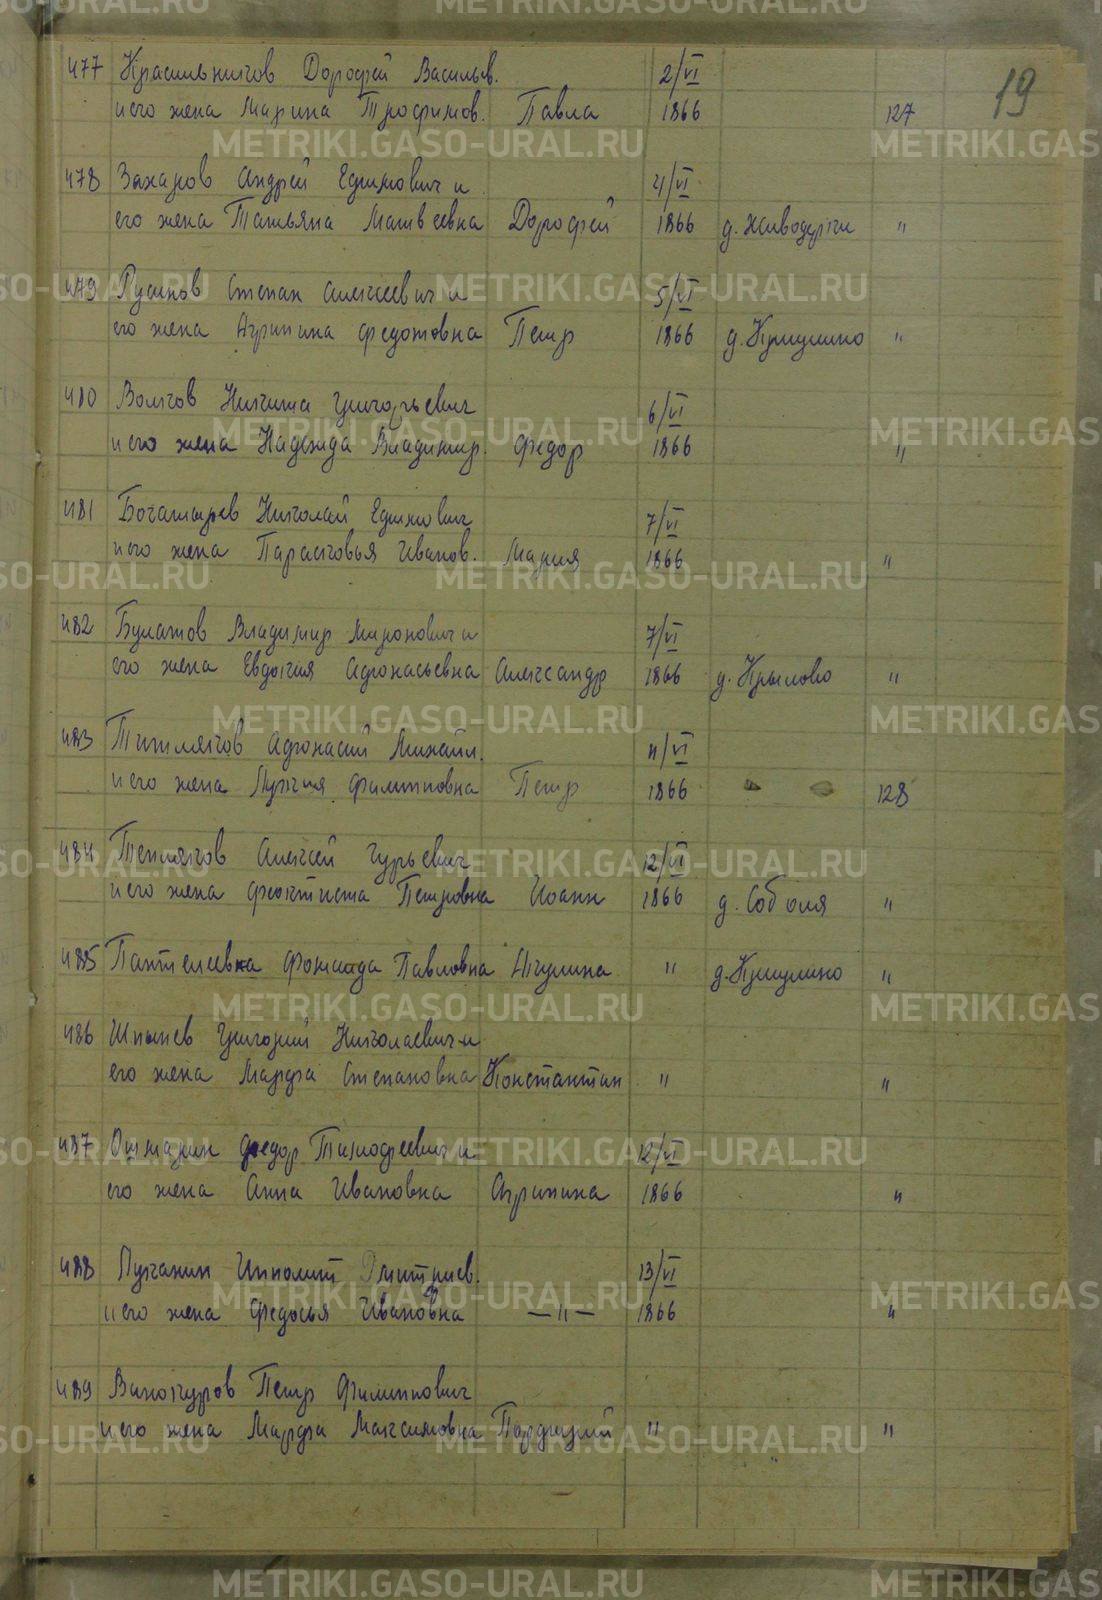 19
477 Красильников Дорофей Васильев. 2/VI
и его жена Марина Трофимов. Павла 1866 127
478 Захаров Андрей Ефимович и 4/VI
его жена Татьяна Матвеевна Дорофей 1866 д. Живодерки "
479 Русинов Степан Алексеевич и 5/VI
его жена Агрипина Федотовна Петр 1866 д. Крицулино "
480 Волков Никита Григорьевич 6/VI
и его жена Надежда Владимир. Федор 1866 "
481 Богатырев Николай Ефимович 7/VI
и его жена Парасковья Иванов. Мария 1866 "
482 Булатов Владимир Миронович и 7/VI
его жена Евдокия Афонасьевна Александр 1866 д. Крылово "
483 Титляков Афонасий Михайл. 11/VI
и его жена Лукия Филипповна Петр 1866 128
484 Тепляков Алексей Гурьевич 12/VI
и его жена Феоктиста Петровна Иоанн 1866 д. Соболя "
485 Пантелеевка Павловна Акулина " д. Крицулино "
486 Шпынев Григорий Николаевич и
его жена Марфа Степановна Константин " "
487 Федор Тимофеевич и 12/VI
его жена Анна Ивановна Агрипина 1866 "
488 Луканин Ипполит Дмитриев. 13/VI
и его жена Федосья Ивановна —"— 1866 "
489 Винокуров Петр Филиппович
и его жена Марфа Максимовна " "
METRIKI.GASO-URAL.RU